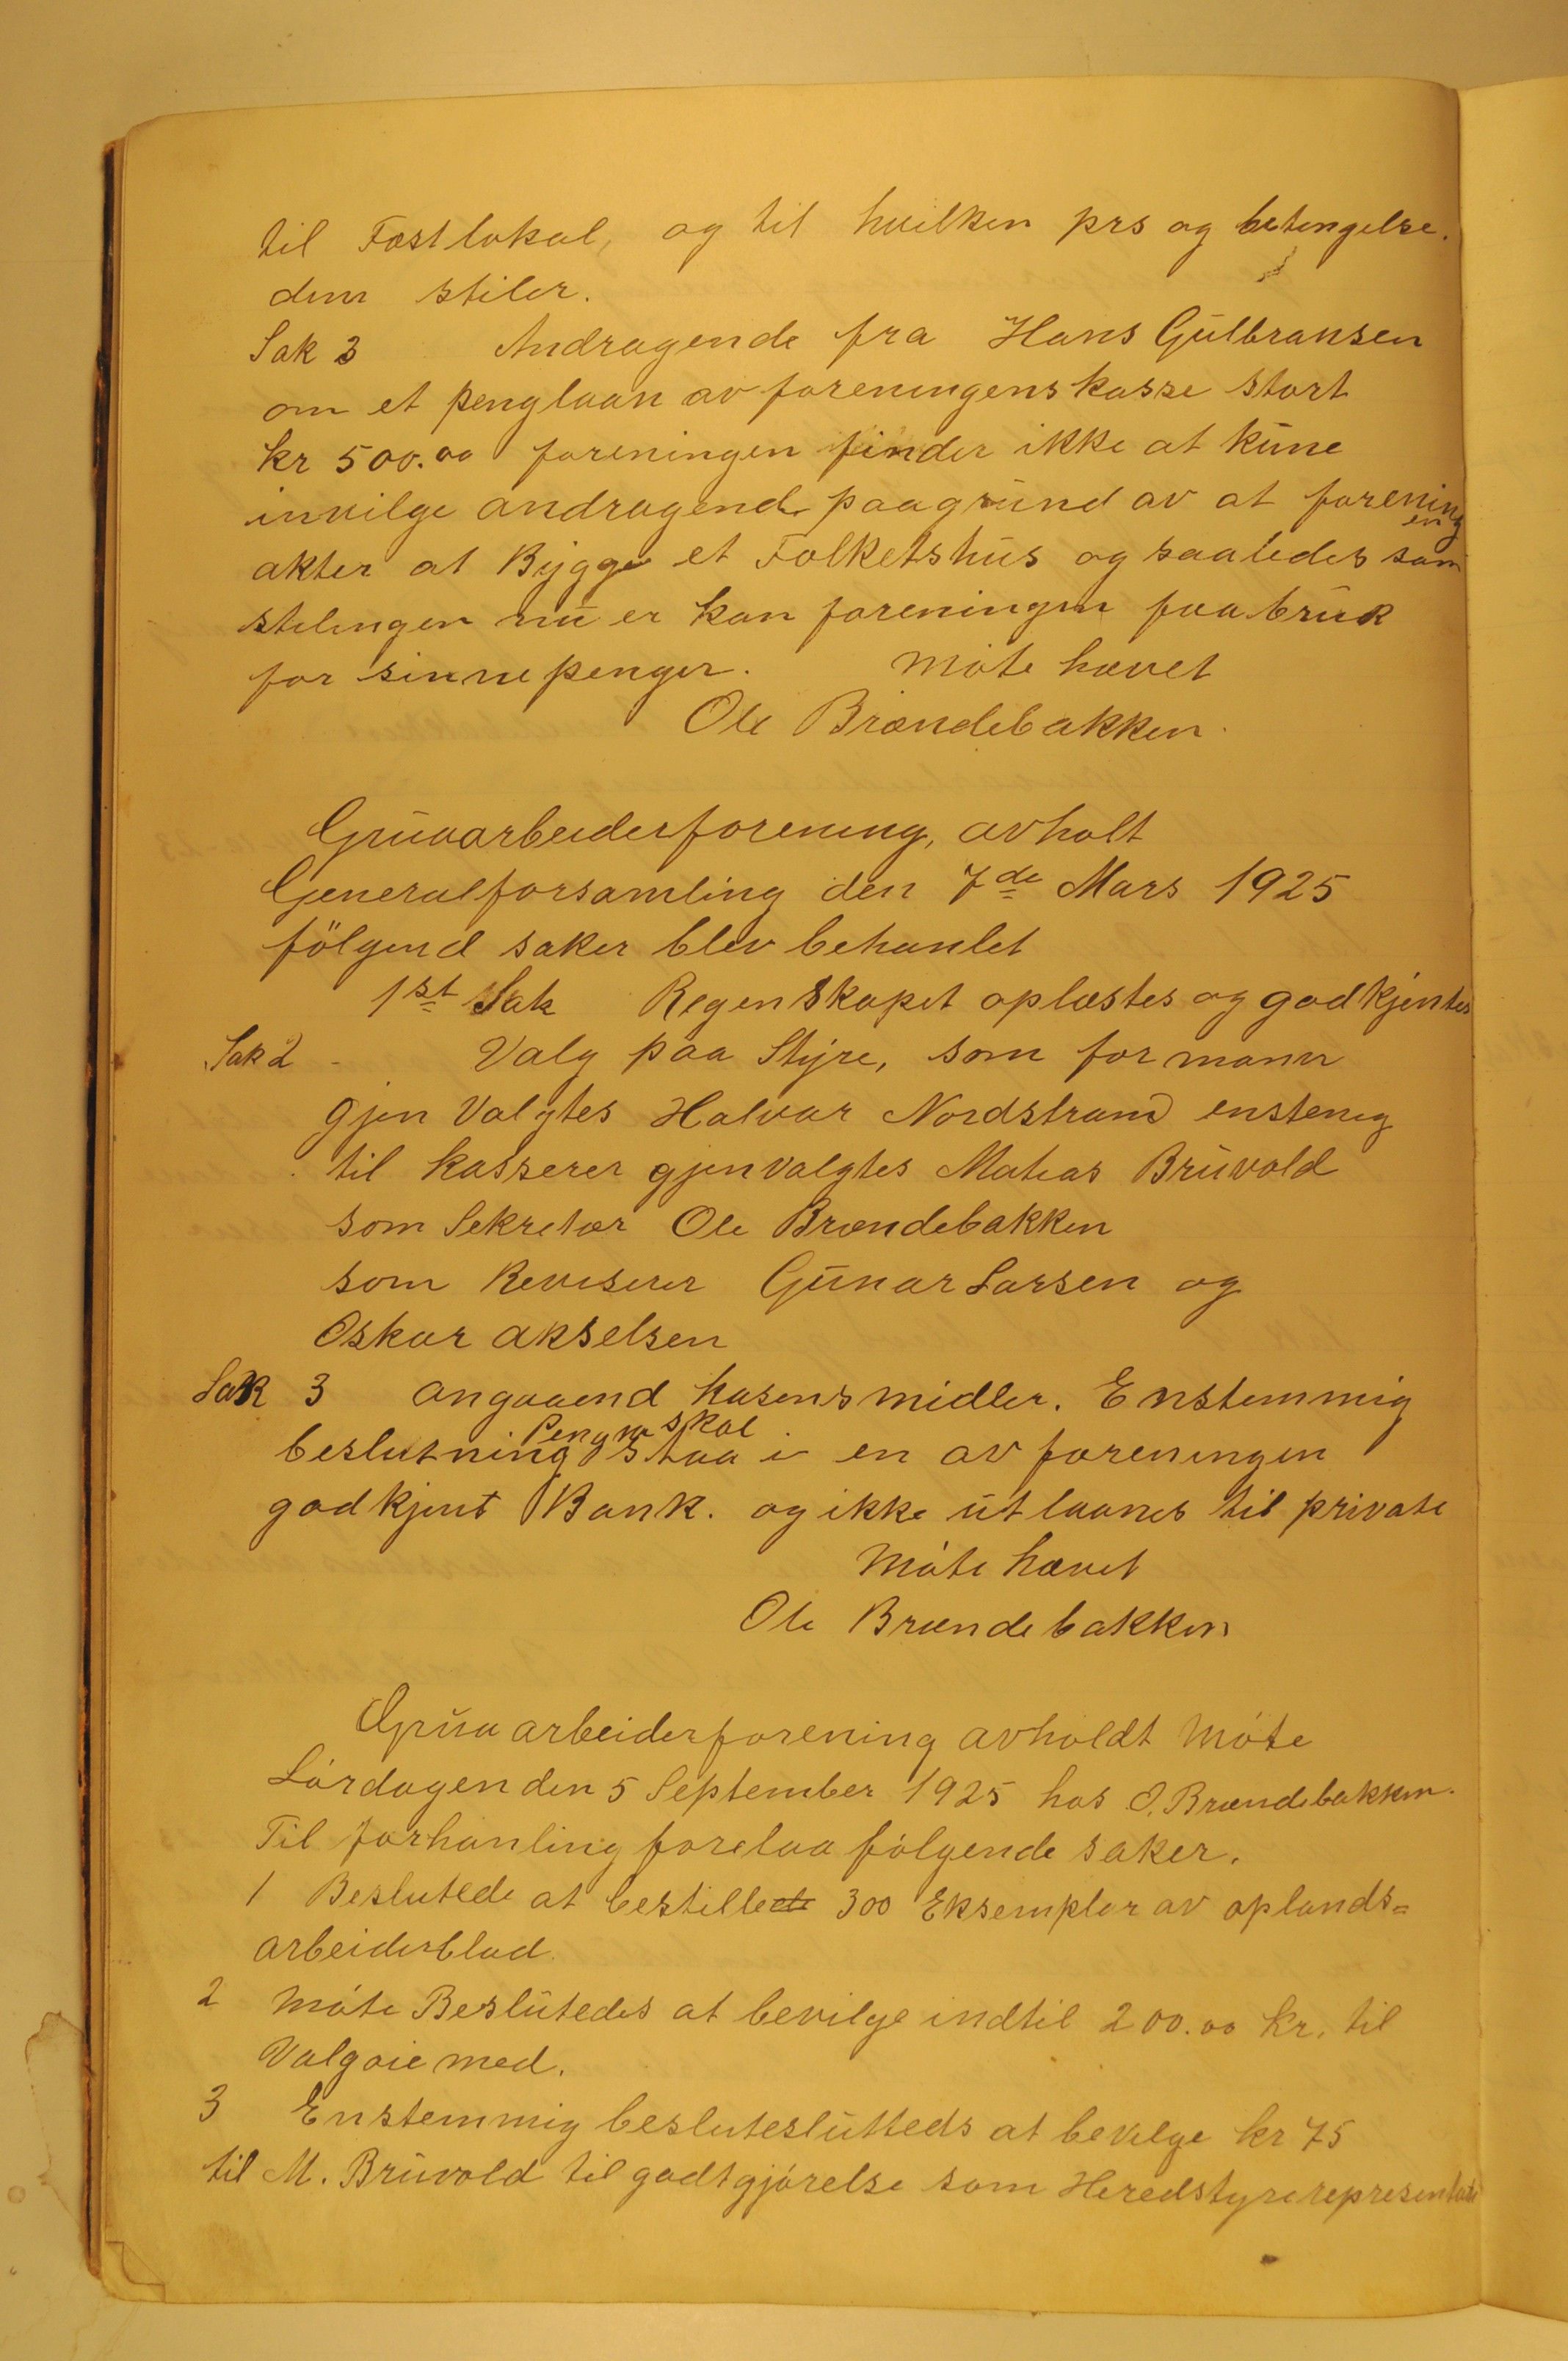 til Fastlokal, og til hvilken prs og betengelse.
dem stiler.
Sak 3 Andragende fra Hans Gulbransen
om et penglaan av foreningens kasse stort
kr 500.00 foreningen finder ikke at kune
invilge andragende paagrund av at forening
en
akter at Bygge et Folketshus og saaledes som
stelingen nu er kan foreningen faa bruk
for sinne penger. Møte hævet
Ole Brændebakken.
Gruvarbeiderforening, avholt
Generalforsamling den 7de Mars 1925
følgend saker blev behanlet
1st Sak Regenskapet oplæstes og godkjentes
Sak 2 - Valg paa Styre, som for mann
gjen Valgtes Halvar Nordstrand enstemig
til kasserer gjenvalgtes Matias Bruvold
som Sekretær Ole Brændebakken
som Reviserer Gunar Larsen og
Oskar akselsen
Sak 3 angaaend kasens midler. Enstemmig
Pengene skal
beslutning staa i en av foreningen
godkjent Bank. og ikke utlaanes til private
Møte hævet
Ole Brændebakken
Gruvarbeiderforening avholdt Møte
Lørdagen den 5 September 1925 hos O. Brændebakken.
Til forhanling forelaa følgende saker.
1 Beslutede at bestillede 300 Eksemplar av oplands=
arbeiderblad.
2 Møte Beslutedes at bevilge indtil 200.00 kr. til
Valgøiemed.
3 Enstemmig besluteslutteds at bevilge kr 75
til M. Bruvold til godtgjørelse som Heredstyrerepresentate